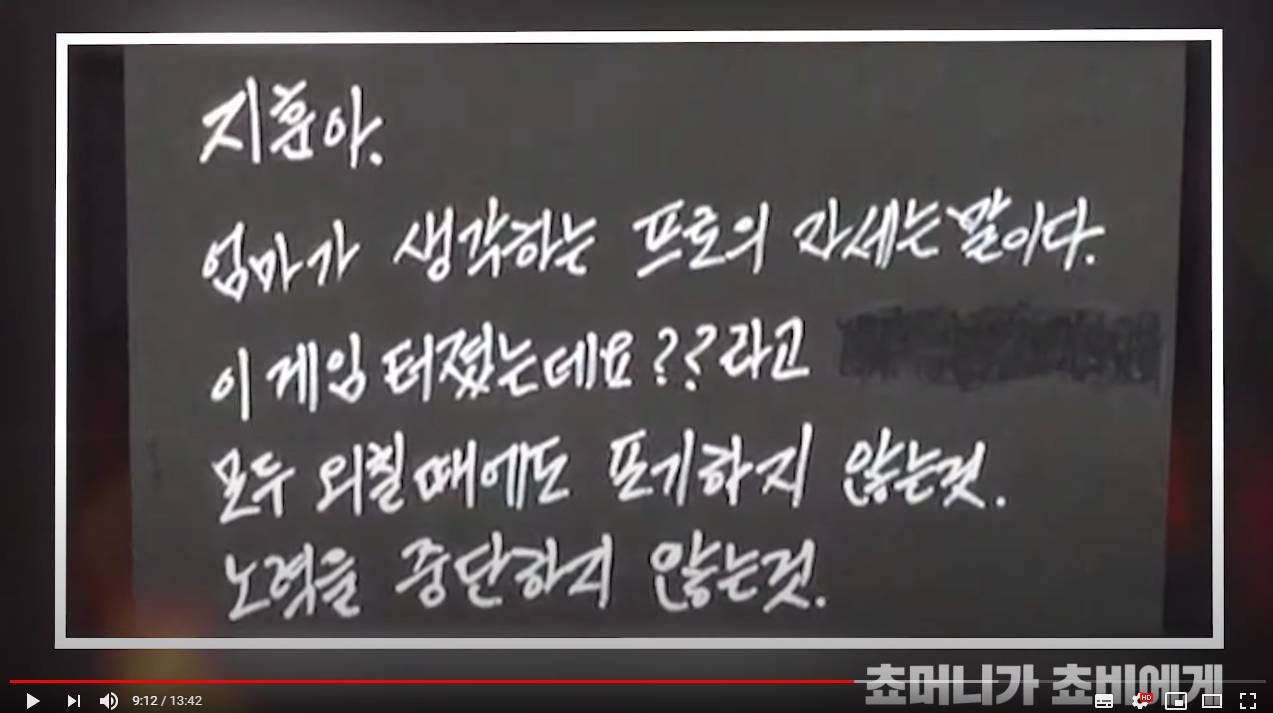 지훈아.
엄마가 생각하는 프로의 자세는 말이다.
이 게임 터졌는데요??라고
모두 외칠때에도 포기하지 않는것.
노력을 중단하지 않는것.
쵸머니가 쵸비에게
9:12 / 13:42
HD